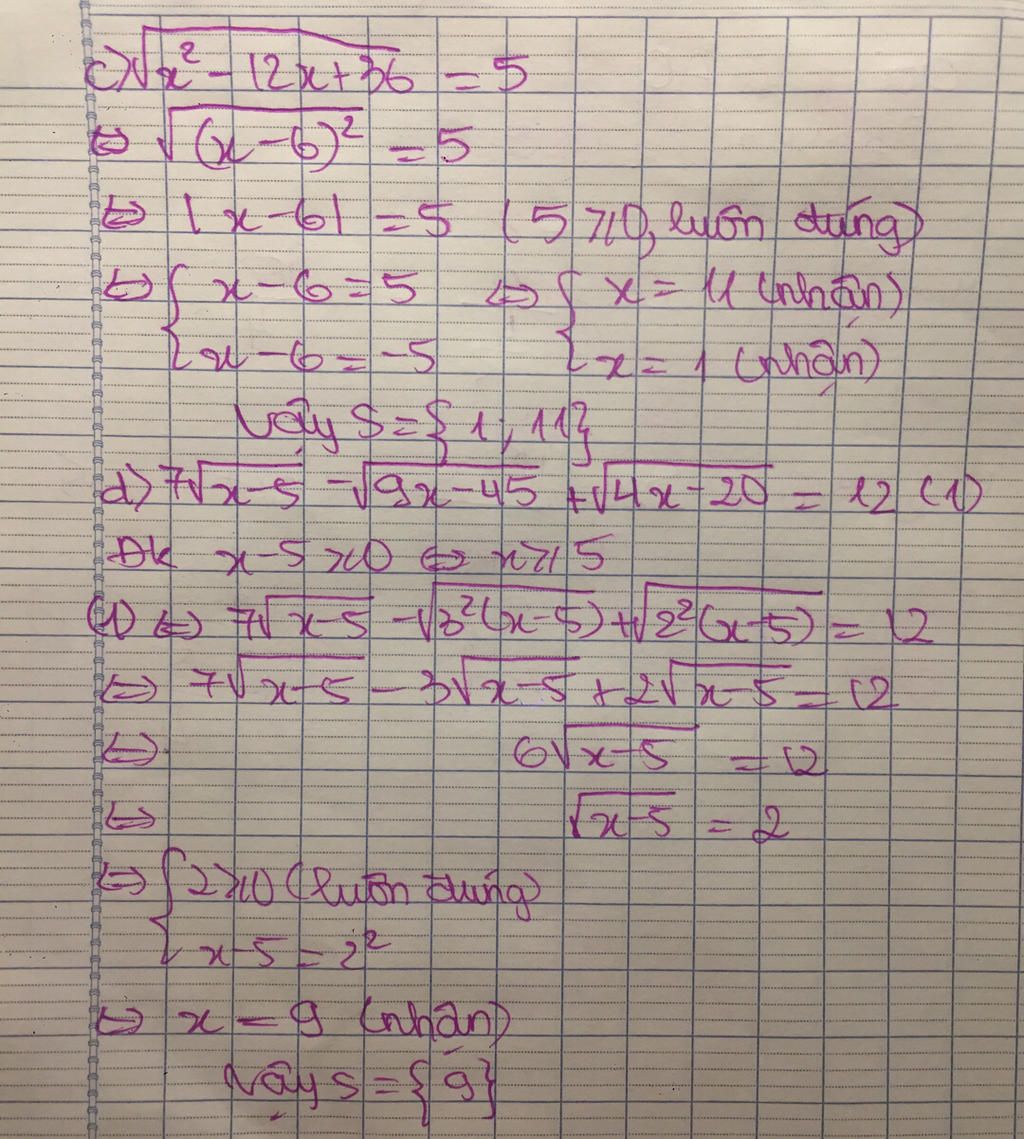 c) √(x² - 12x + 36) = 5
⇔ √((x - 6)²) = 5
⇔ |x - 6| = 5 (5 ≥ 0, luôn đúng)
⇔ { x - 6 = 5 ⇔ { x = 11 (nhận)
{ x - 6 = -5 { x = 1 (nhận)
Vậy S = {1; 11}
d) 7√(x-5) - √(9x-45) + √(4x-20) = 12 (1)
ĐK x - 5 ≥ 0 ⇔ x ≥ 5
(1) ⇔ 7√(x-5) - √(3²(x-5)) + √(2²(x-5)) = 12
⇔ 7√(x-5) - 3√(x-5) + 2√(x-5) = 12
⇔ 6√(x-5) = 12
⇔ √(x-5) = 2
⇔ { 2 ≥ 0 (luôn đúng)
{ x - 5 = 2²
⇔ x = 9 (nhận)
Vậy S = {9}